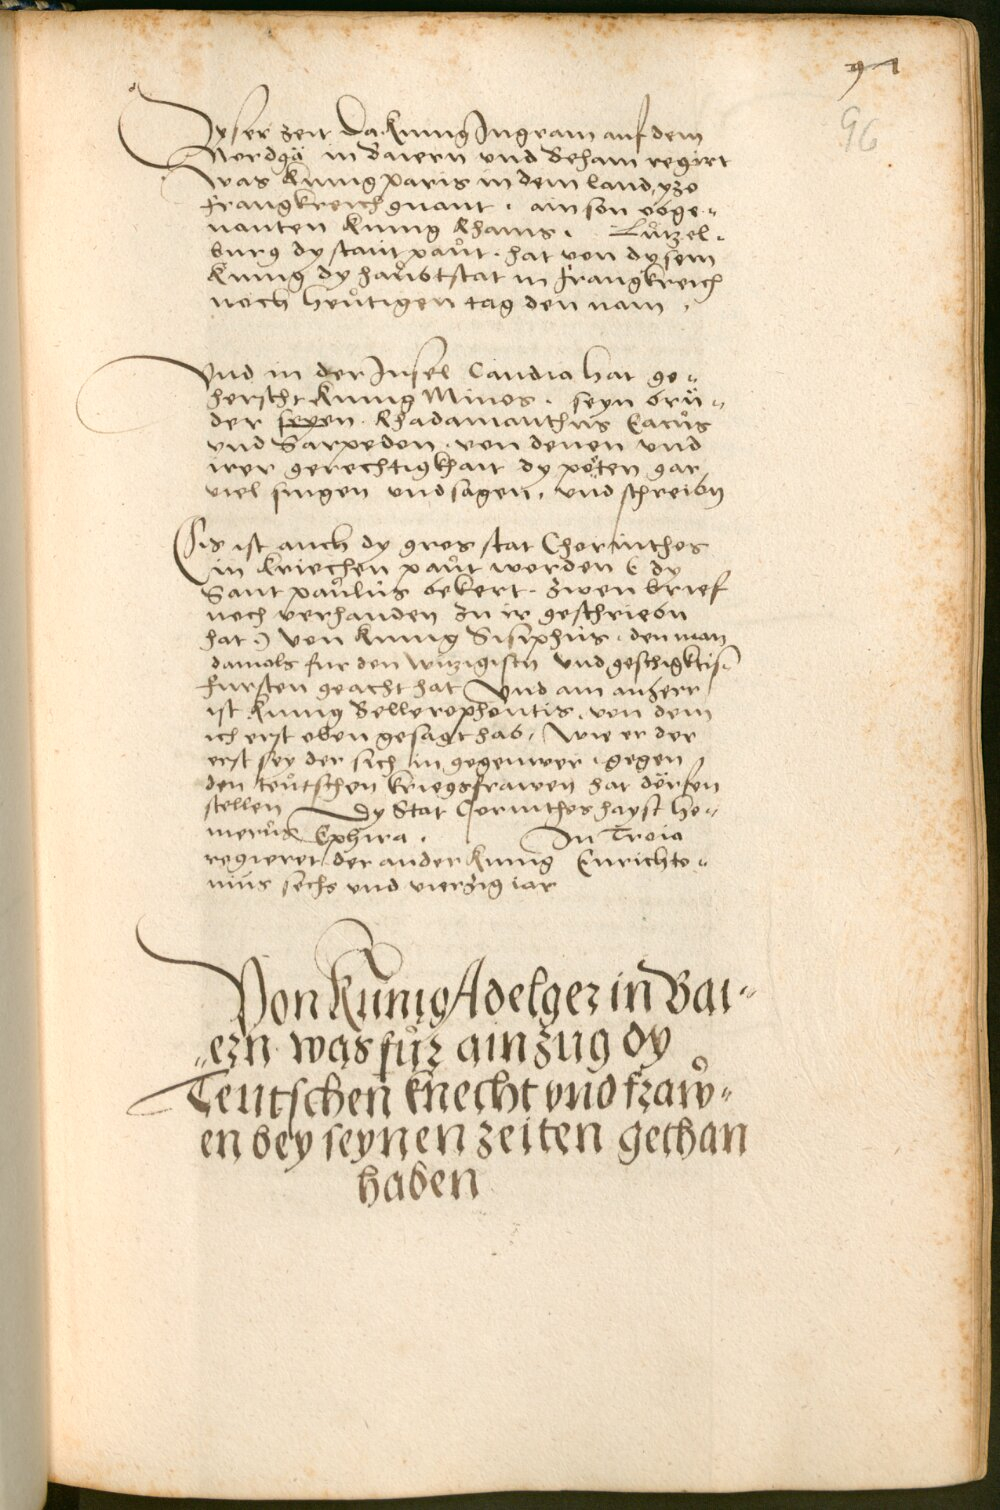 91
96
Dyser zeit da Kunig Ingram auf dem
Nordgä in Baiern und Beham regirt
was Kunig Paris in dem land, yzo
frangkreich gnant. ain son obge=
nanten Kunig Rhams. Lützel=
burg dy statt paůt. hat von dysem
Kunig dy haůbtstat in frangkreich
noch heůtigen tag den nam.
Und in der Insel Candia hat ge=
herscht Kunig Minos. seyn brü=
der seyen Rhadamanthus Eacůs
und Sarpedon. von denen und
irer gerechtigkhait dy pöten gar
viel singen und sagen. und schreibn
Eis ist auch dy gros stat Chorinthos
in Kriechen paůt worden (dy
Sant paůlus bekert. zwen brief
noch verhanden zu ir geschriebn
hat) von Kunig Sisiphus. den man
damals fur den witzigistn und geschigktisn
fursten geacht hat Und am anherr
ist Kunig Bellerophontis. von dem
ich erst oben gesagt hab, wie er der
erst sey der sich in gegenwer. gegen
den teůtschen kriegsfrawen hat dörfen
stellen Dy Stat Corinthos hayst Ho=
merus Ephira. In Troia
regieret der ander Kunig Enrichto=
nius sechs und vierzig iar
Von Kunig Adelger in Bai=
=ern was fůr ain zug dy
Teutschen knecht und fraw=
en bey seynen zeiten gethan
haben